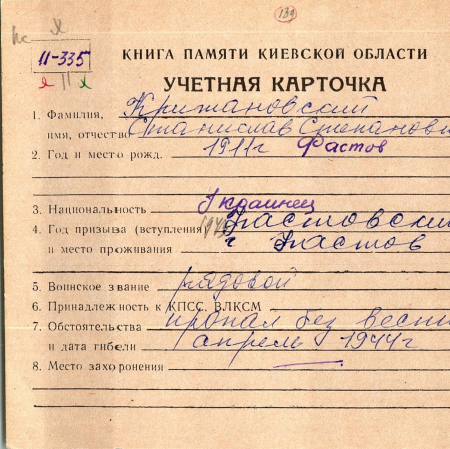 139
11-335
КНИГА ПАМЯТИ КИЕВСКОЙ ОБЛАСТИ
УЧЕТНАЯ КАРТОЧКА
1. Фамилия, Крижановский
имя, отчество Станислав Степанови
2. Год и место рожд. 1911г Фастов
3. Национальность Украинец
4. Год призыва (вступления) Фастовский
и место проживания г Фастов
5. Воинское звание рядовой
6. Принадлежность к КПСС, ВЛКСМ
7. Обстоятельства пропал без вести
и дата гибели апрель 1944г
8. Место захоронения